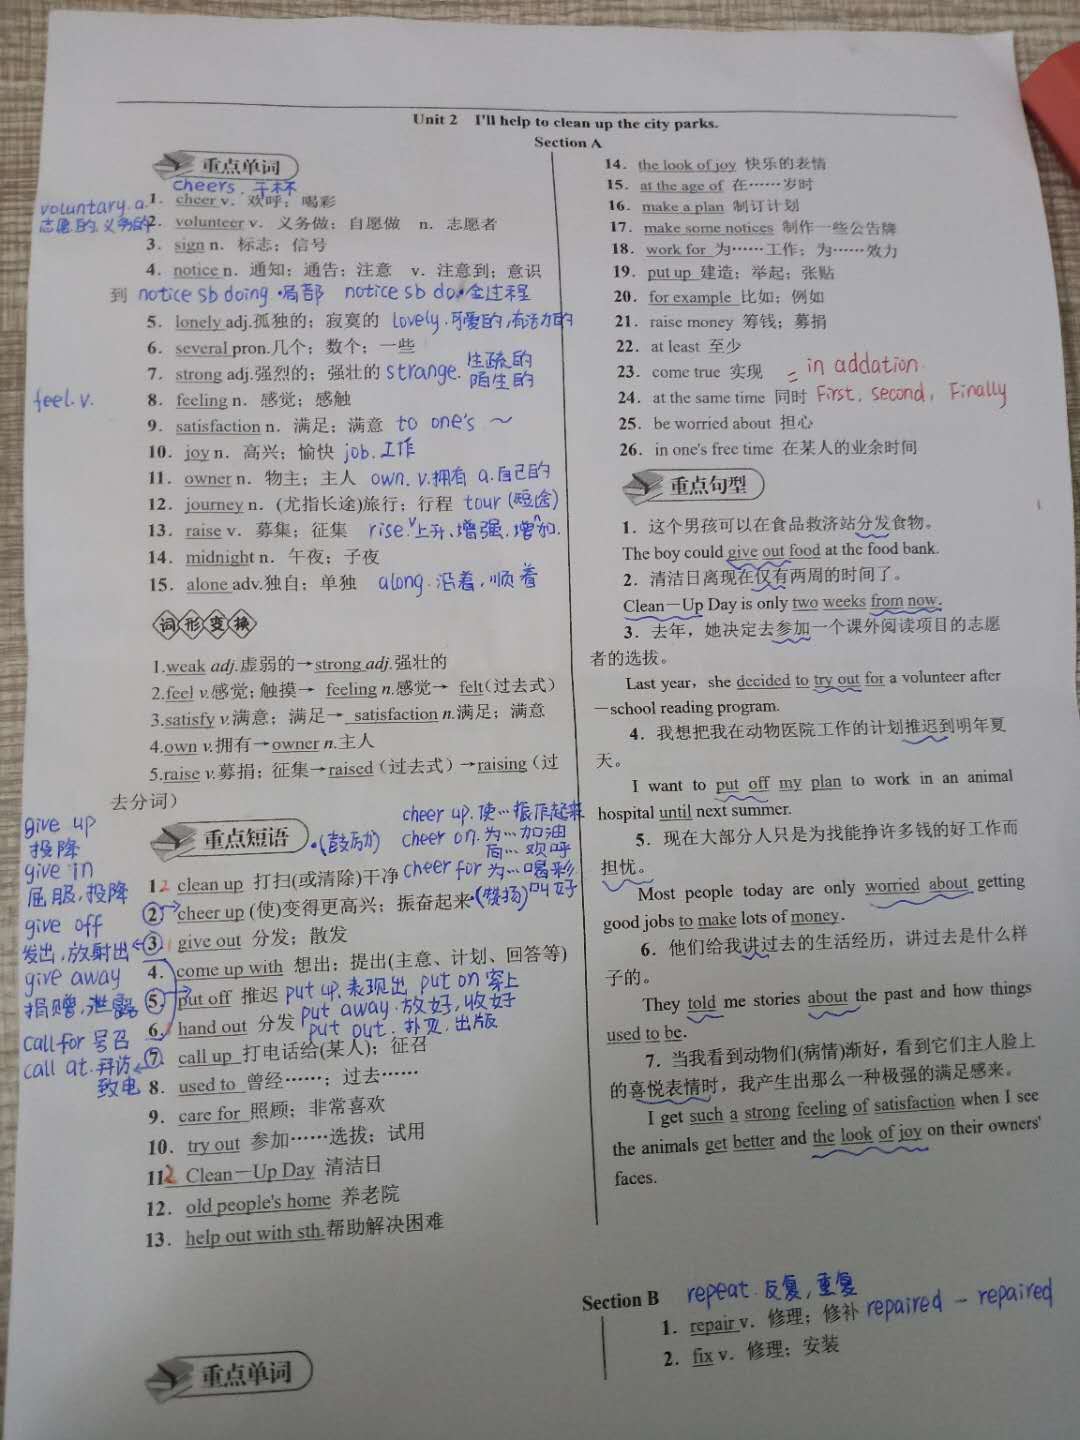 Unit 2 I'll help to clean up the city parks.
Section A
重点单词
cheers. 干杯
1. cheer v. 欢呼；喝彩
voluntary. a.
志愿的,义务的
2. volunteer v. 义务做；自愿做 n. 志愿者
3. sign n. 标志；信号
4. notice n. 通知；通告；注意 v. 注意到；意识
到 notice sb doing ·局部 notice sb do·全过程
5. lonely adj.孤独的；寂寞的 lovely. 可爱的,有活力的
6. several pron.几个；数个；一些
7. strong adj.强烈的；强壮的 strange. 生疏的
陌生的
feel. v.
8. feeling n. 感觉；感触
9. satisfaction n. 满足；满意 to one's ～
10. joy n. 高兴；愉快 job. 工作
11. owner n. 物主；主人 own. v.拥有 a.自己的
12. journey n. (尤指长途)旅行；行程 tour (短途)
13. raise v. 募集；征集 rise. v 上升、增强、增加.
14. midnight n. 午夜；子夜
15. alone adv.独自；单独 along. 沿着,顺着
词形变换
1.weak adj.虚弱的→strong adj.强壮的
2.feel v.感觉；触摸→ feeling n.感觉→ felt(过去式)
3.satisfy v.满意；满足→ satisfaction n.满足；满意
4.own v.拥有→owner n.主人
5.raise v.募捐；征集→raised（过去式）→raising（过
去分词）
重点短语
·(鼓励)
cheer up. 使…振作起来
cheer on. 为…加油
向…欢呼
cheer for 为…喝彩
give up
投降
give in
屈服,投降
give off
发出,放射出
give away
捐赠,泄露
call for 号召
call at. 拜访
致电
12 clean up 打扫(或清除)干净
2 cheer up (使)变得更高兴；振奋起来·(赞扬) 叫好
3 give out 分发；散发
4. come up with 想出；提出(主意、计划、回答等)
5. put off 推迟 put up. 表现出 put on 穿上
put away. 放好,收好
6. hand out 分发 put out. 扑灭. 出版
7 call up 打电话给(某人)；征召
8. used to 曾经……；过去……
9. care for 照顾；非常喜欢
10. try out 参加……选拔；试用
112 Clean－Up Day 清洁日
12. old people's home 养老院
13. help out with sth.帮助解决困难
14. the look of joy 快乐的表情
15. at the age of 在……岁时
16. make a plan 制订计划
17. make some notices 制作一些公告牌
18. work for 为……工作；为……效力
19. put up 建造；举起；张贴
20. for example 比如；例如
21. raise money 筹钱；募捐
22. at least 至少
23. come true 实现 = in addation
24. at the same time 同时 First, second, Finally
25. be worried about 担心
26. in one's free time 在某人的业余时间
重点句型
1. 这个男孩可以在食品救济站分发食物。
The boy could give out food at the food bank.
2. 清洁日离现在仅有两周的时间了。
Clean－Up Day is only two weeks from now.
3. 去年，她决定去参加一个课外阅读项目的志愿
者的选拔。
Last year, she decided to try out for a volunteer after
－school reading program.
4. 我想把我在动物医院工作的计划推迟到明年夏
天。
I want to put off my plan to work in an animal
hospital until next summer.
5. 现在大部分人只是为找能挣许多钱的好工作而
担忧。
Most people today are only worried about getting
good jobs to make lots of money.
6. 他们给我讲过去的生活经历，讲过去是什么样
子的。
They told me stories about the past and how things
used to be.
7. 当我看到动物们(病情)渐好，看到它们主人脸上
的喜悦表情时，我产生出那么一种极强的满足感来。
I get such a strong feeling of satisfaction when I see
the animals get better and the look of joy on their owners'
faces.
Section B
重点单词
repeat. 反复,重复
1. repair v. 修理；修补 repaired – repaired
2. fix v. 修理；安装